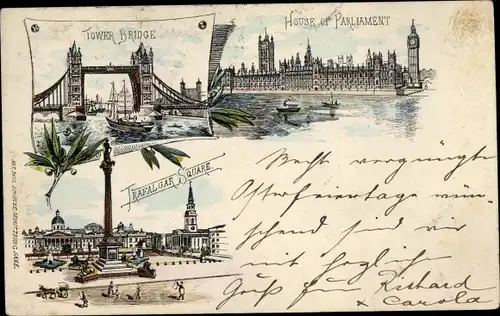 TOWER BRIDGE
HOUSE OF PARLIAMENT
TRAFALGAR SQUARE
Recht vergnügte
Osterfeiertage wün-
schend sind wir
mit herzlich
Gruß Richard
+ Carola